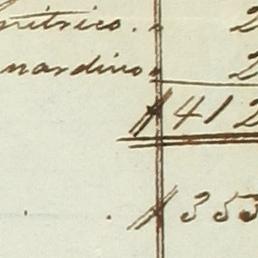 mitrico. . 2
nardino. 2
$412
. . $353